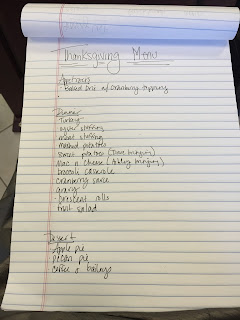 Thanksgiving Menu
Appetizers
· baked brie w/ cranberry topping
Dinner
· Turkey
· oyster stuffing
· meat stuffing
· mashed potatoes
· sweet potatoes (Diana bringing)
· Mac n Cheese (Ashley bringing)
· broccoli casserole
· cranberry sauce
· gravy
· crescent rolls
· fruit salad
Dessert
· Apple pie
· pecan pie
· coffee &